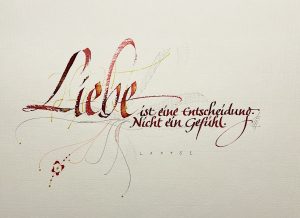 Liebe
ist eine Entscheidung.
Nicht ein Gefühl.